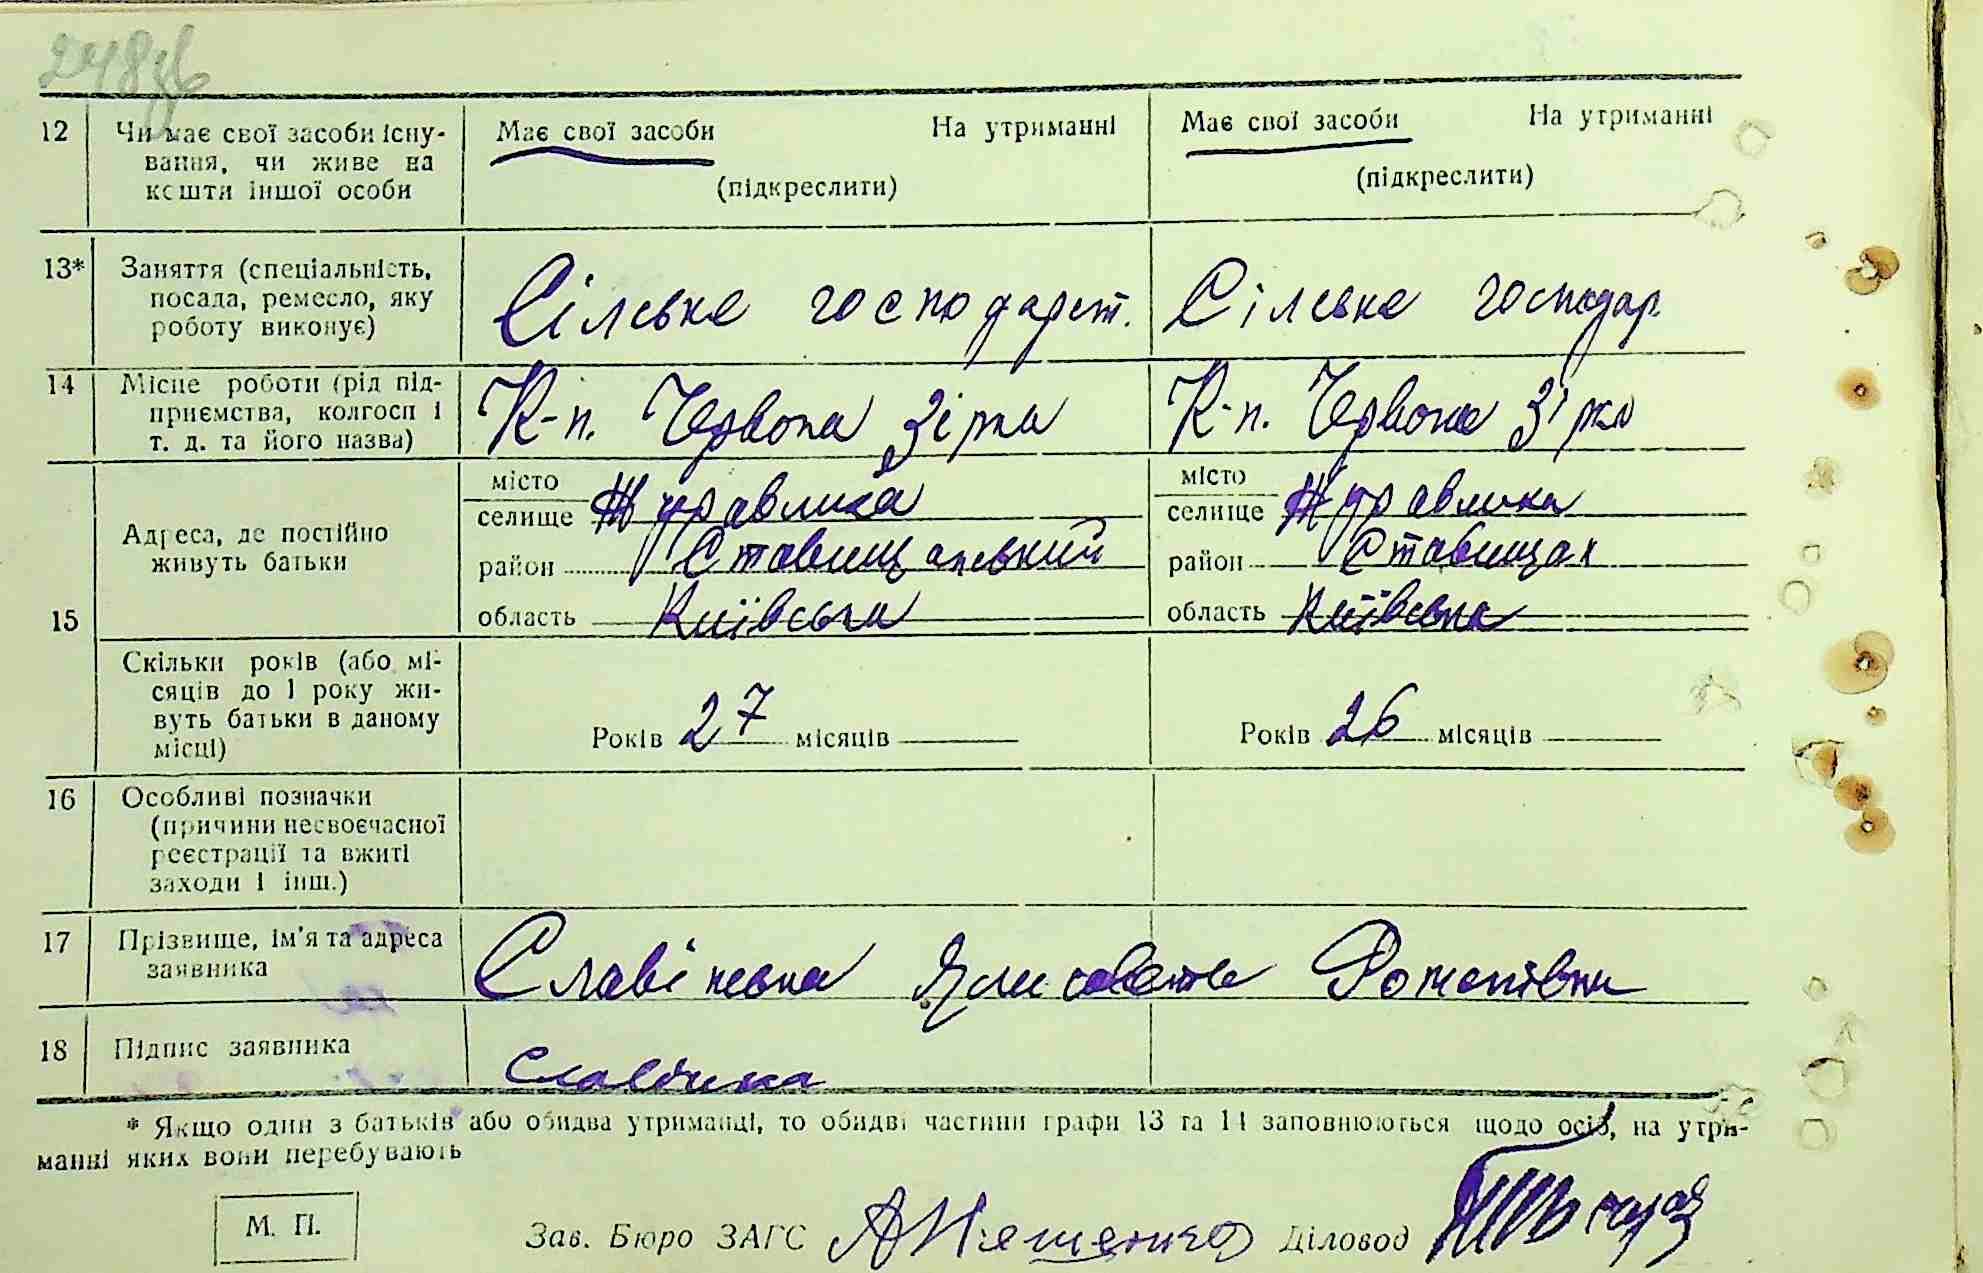 248зв
12 Чи має свої засоби існу- Має свої засоби На утриманні Має свої засоби На утриманні
вання, чи живе на
кошти іншої особи (підкреслити) (підкреслити)
13* Заняття (спеціальність,
посада, ремесло, яку Сілське господарст. Сілське господар.
роботу виконує)
14 Місце роботи (рід під-
приємства, колгосп і К-п. Червона Зірка К-п. Червона Зірка
т. д. та його назва)
місто місто
селище Журавлиха селище Журавлиха
15 Адреса, де постійно
живуть батьки район Ставищанський район Ставищан
область Київська область Київська
Скільки років (або мі-
сяців до 1 року жи-
вуть батьки в даному Років 27 місяців Років 26 місяців
місці)
16 Особливі позначки
(причини несвоєчасної
реєстрації та вжиті
заходи і інш.)
17 Прізвище, ім'я та адреса
заявника Славінська
18 Підпис заявника
* Якщо один з батьків або обидва утриманці, то обидві частини графи 13 та 14 заповнюються щодо осіб, на утри-
манні яких вони перебувають
М. П. Зав. Бюро ЗАГС Діловод